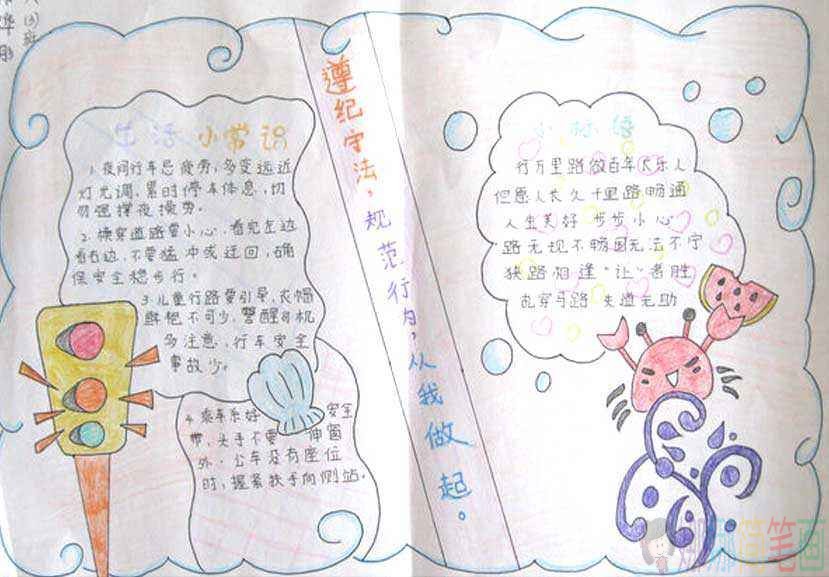 生活 小常识
1.夜间行车忌疲劳,多变远近
灯光调.累时停车休息,切
勿强撑夜疲劳。
2.横穿道路要小心,看完左边
看右边,不要猛冲或迂回,确
保安全稳步行。
3.儿童行路要引导,衣帽
鲜艳不可少,警醒司机
多注意,行车安全
事故少。
4.乘车系好 安全
带,头手不要 伸窗
外.公车没有座位
时,握紧扶手向侧站.
遵纪守法,规范行为,从我做起。
小标语
行万里路做百年长乐人
但愿人长久千里路畅通
人生美好 步步小心
路无规不畅国无法不宁
狭路相逢"让"者胜
乱穿马路 失道无助
简笔画